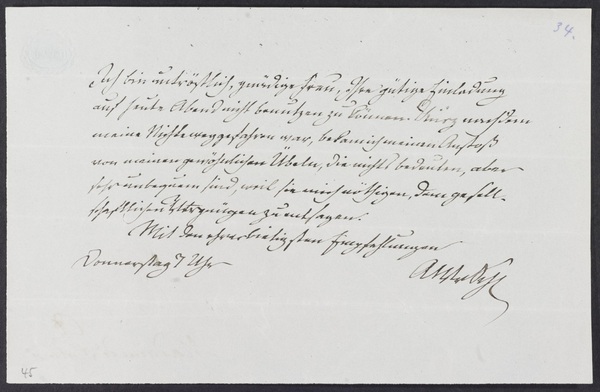 34.
Ich bin untröstlich, gnädige Frau, Ihre gütige Einladung
auf heute Abend nicht benutzen zu können. Kurz nachdem
meine Nichte weggefahren war, bekam ich meinen Anstoß
von meinen gewöhnlichen Übeln, die nichts bedeuten, aber
sehr unbequem sind, weil sie mich nöthigen, dem gesell-
schaftlichen Vergnügen zu entsagen.
Mit den ehrerbietigsten Empfehlungen
Donnerstag 7 Uhr
AWvSchl
45